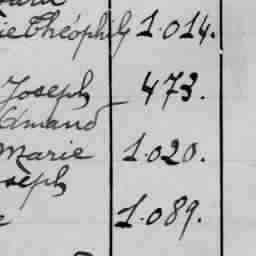 ie Théophile 1.014.
Joseph 473.
Amand
Marie 1.020.
oseph
1.089.